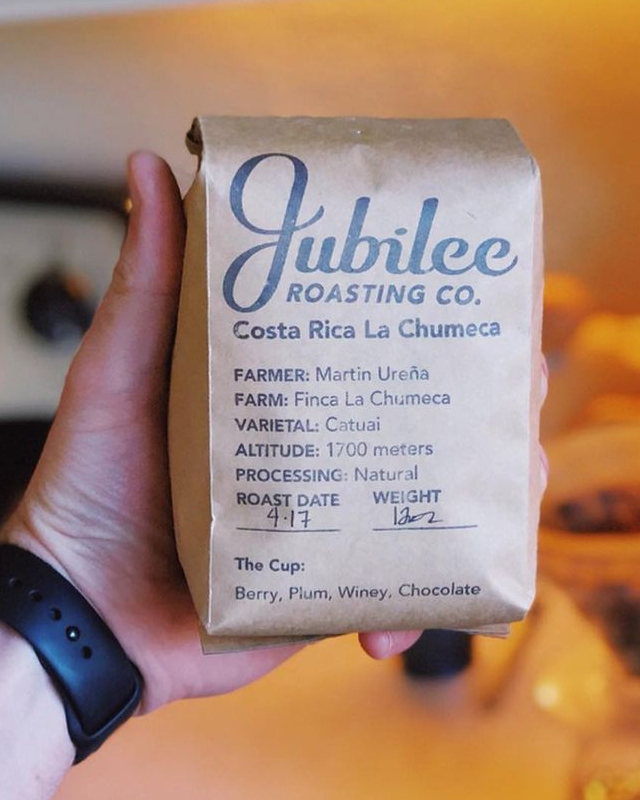 Jubilee
ROASTING CO.
Costa Rica La Chumeca
FARMER: Martin Ureña
FARM: Finca La Chumeca
VARIETAL: Catuai
ALTITUDE: 1700 meters
PROCESSING: Natural
ROAST DATE WEIGHT
4·17 12oz
The Cup:
Berry, Plum, Winey, Chocolate